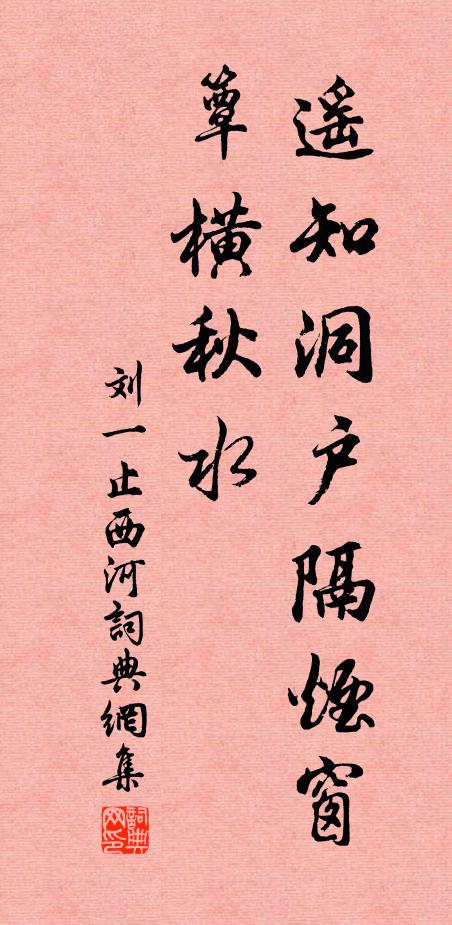 遥知洞户隔煙窗
簟横秋水
刘一止西河詞典網集
詞典网印